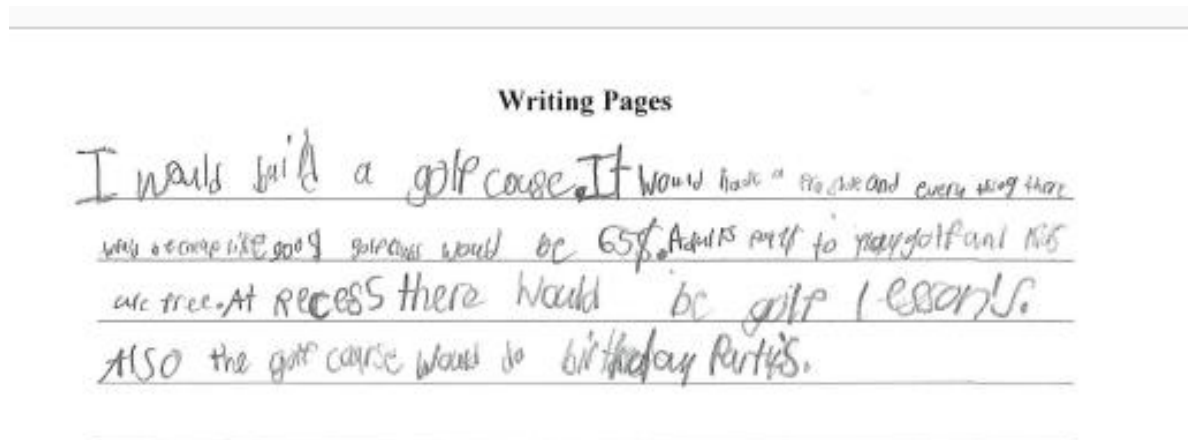 Writing Pages
I would build a golf couse. It would have a Pro and every thing there
would be cheap like good golf would be 65$. Adults pay to play golf and kids
are free. At Recess there would be golf lesson's.
Also the golf course would do birthday Party's.